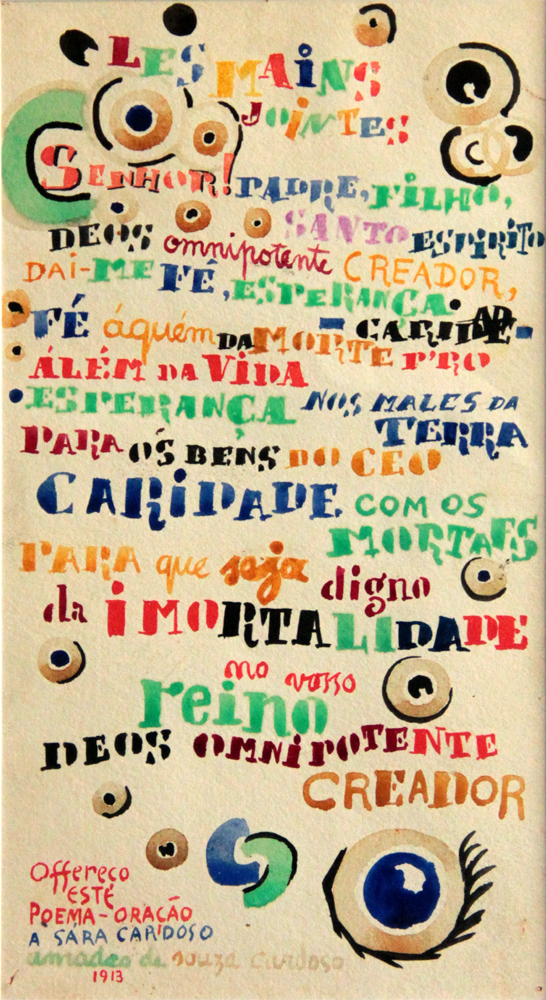 LES MAINS
JOINTES
SENHOR! PADRE, FILHO,
SANTO ESPIRITO
DEOS omnipotente CREADOR,
DAI-ME FÉ, ESPERANÇA.
FÉ áquém DA MORTE - CARIDADE -
ÁLÉM DA VIDA P'RO
ESPERANÇA NOS MALES DA
TERRA
PARA OS BENS DO CEO
CARIDADE COM OS
MORTAES
PARA que seja digno
da iMORTALIDADE
no vosso
reino
DEOS OMNIPOTENTE
CREADOR
Offereço
ESTÉ
POEMA-ORAÇÃO
A SARA CARDOSO
amadeo de souza cardoso
1913